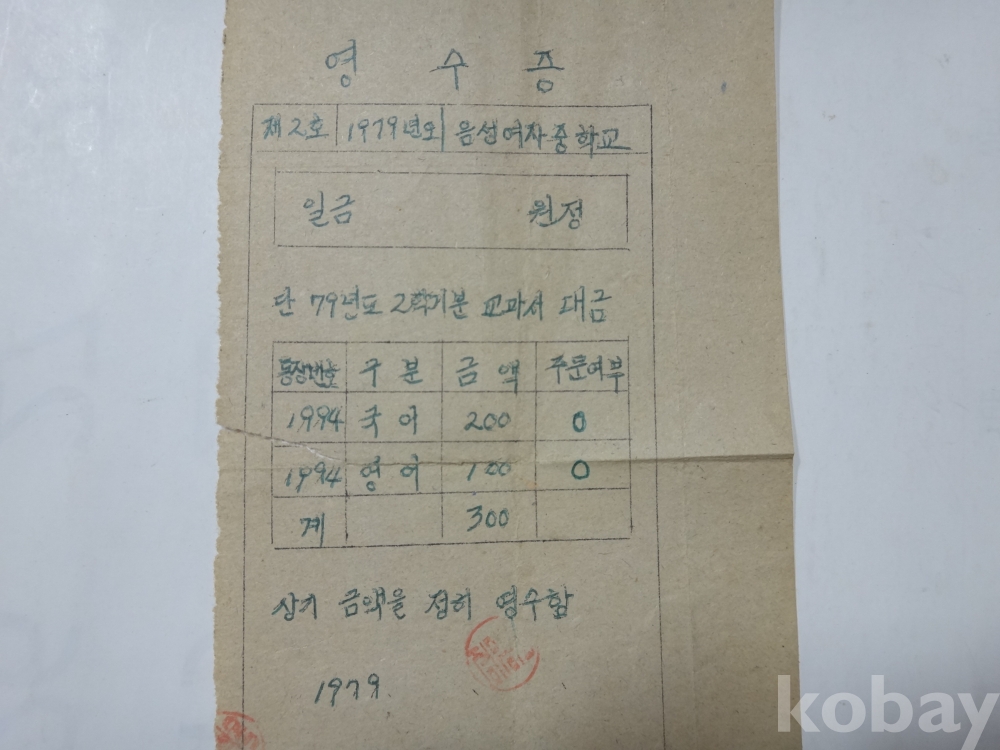 영 수 증
제2호 1979년도 음성여자중학교
일금 원정
단 79년도 2학기분 교과서 대금
통장번호 구분 금액 주문여부
1994 국어 200 0
1994 영어 100 0
계 300
상기 금액을 정히 영수함
1979.
kobay